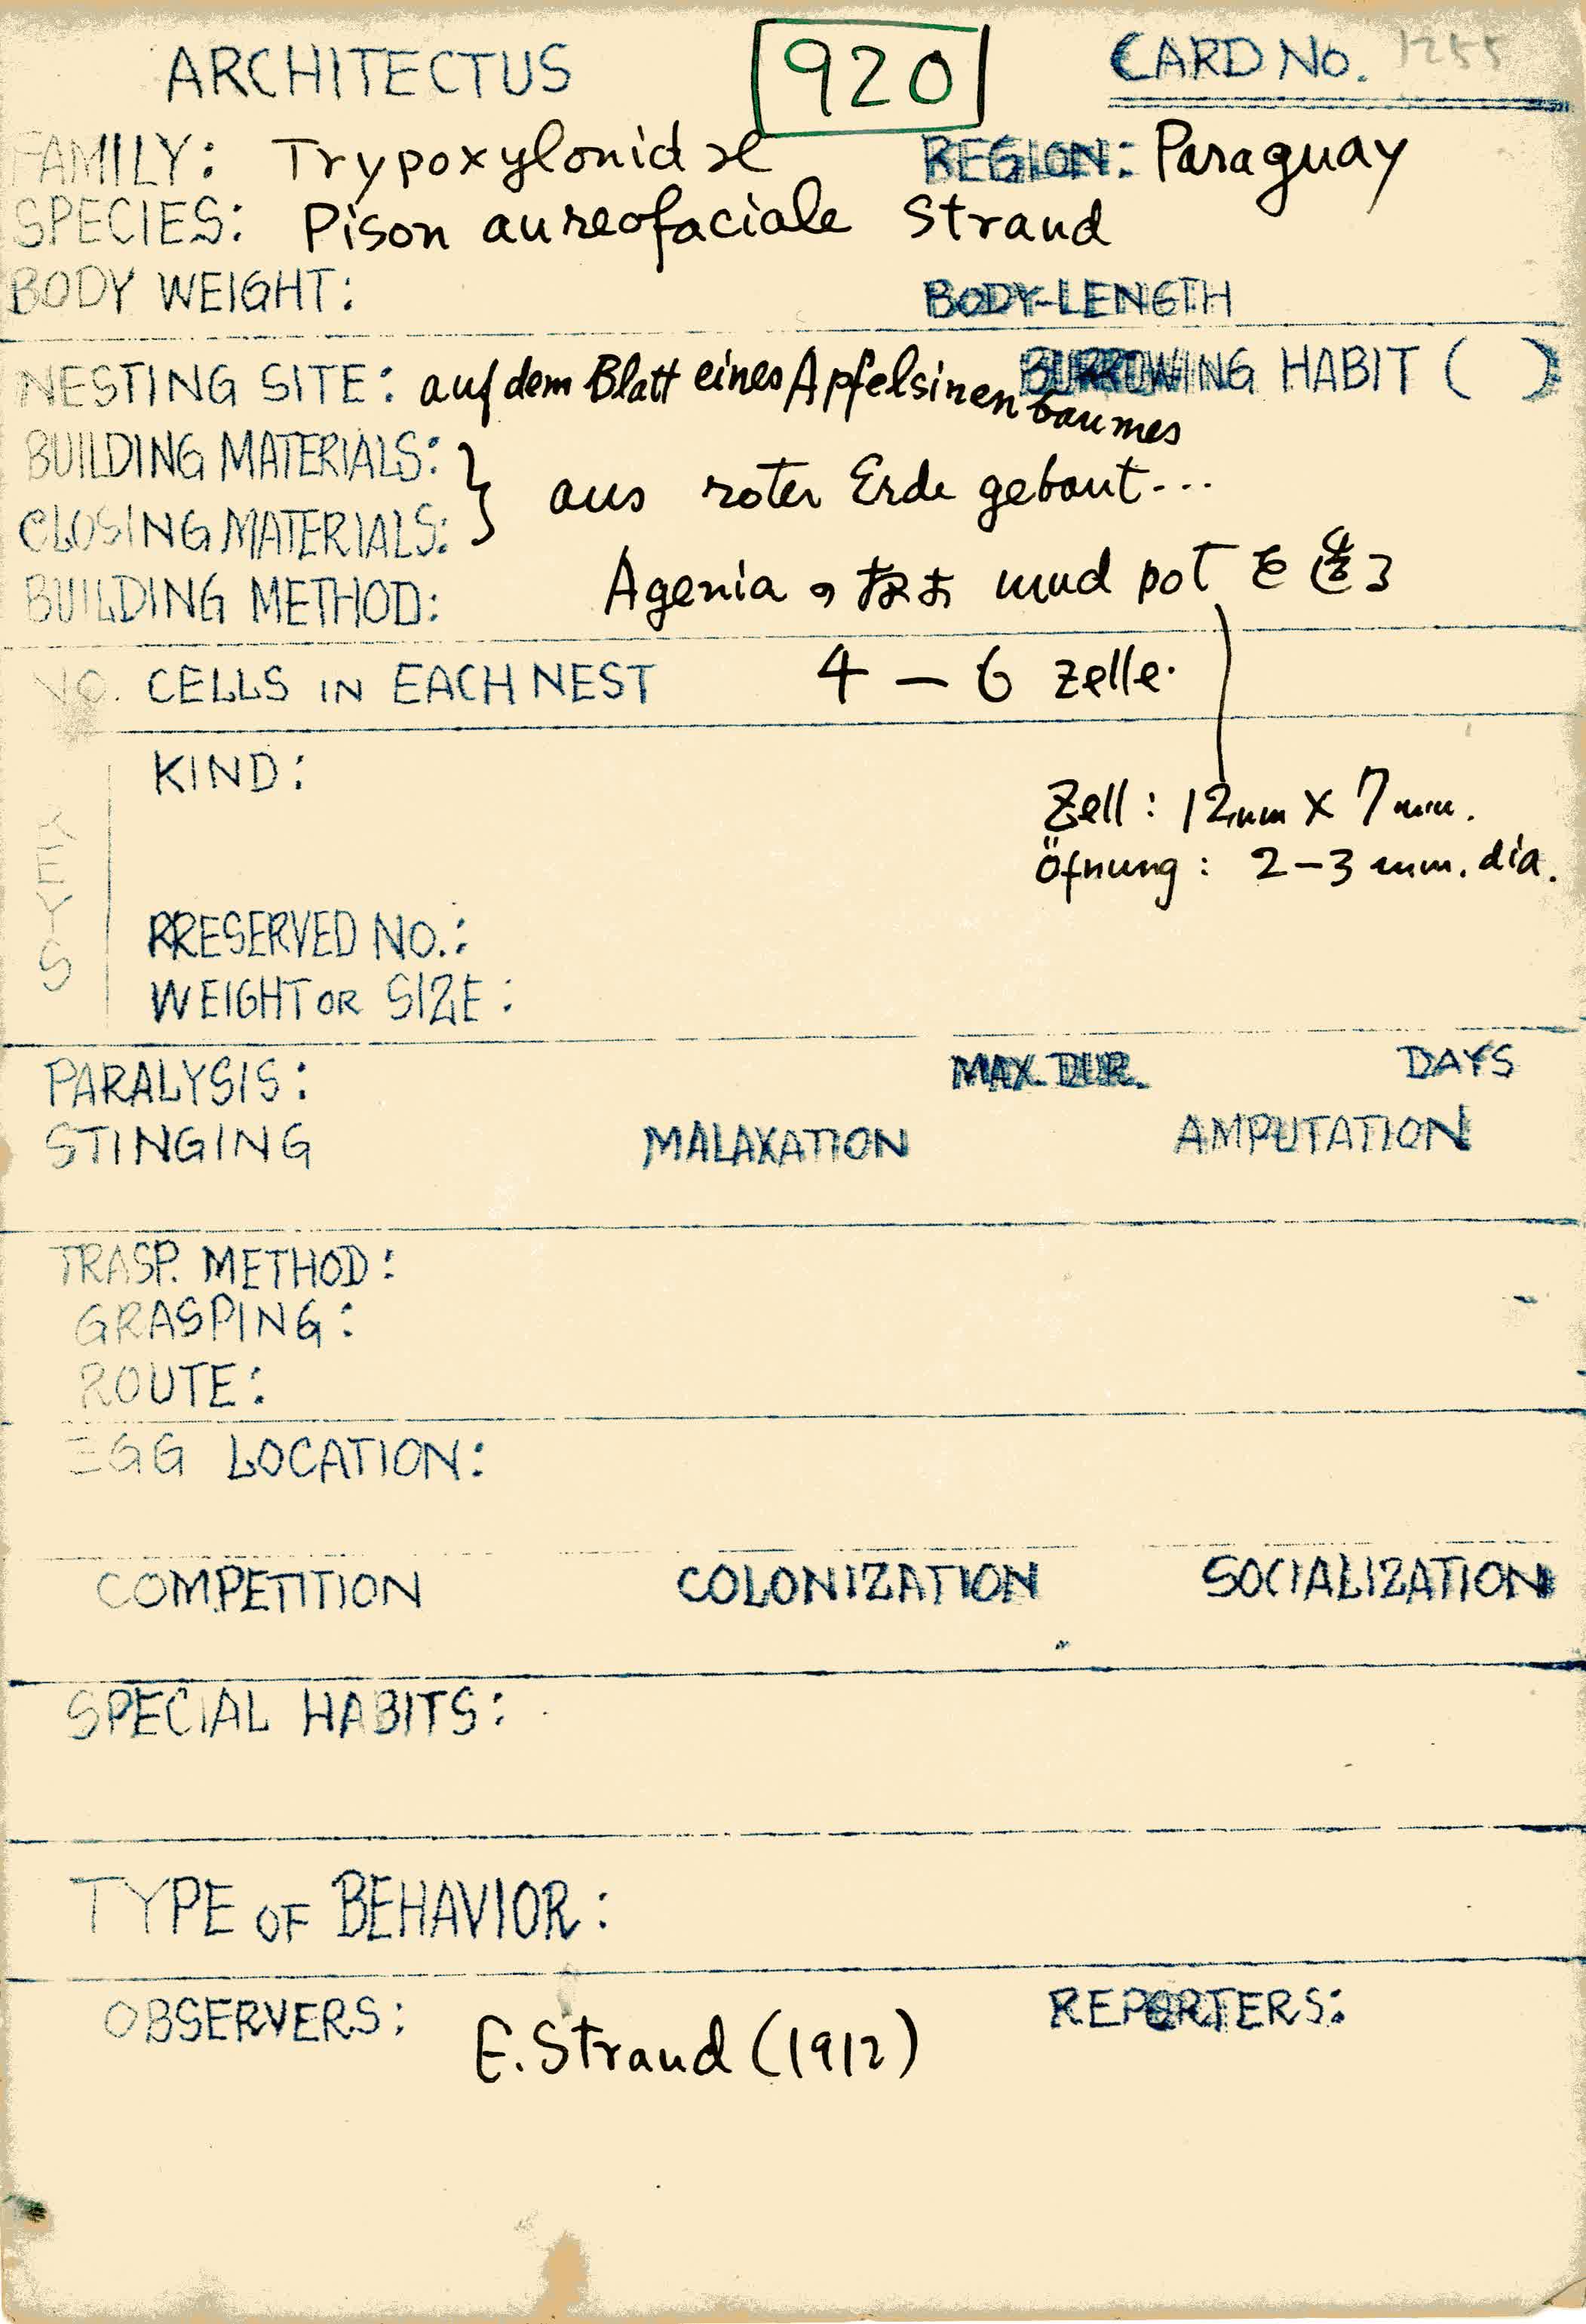 ARCHITECTUS 920 CARD NO. 1255
FAMILY: Trypoxylonidæ REGION: Paraguay
SPECIES: Pison aureofaciale Strand
BODY WEIGHT: BODY-LENGTH
NESTING SITE: auf dem Blatt eines Apfelsinenbaumes BURROWING HABIT ( )
BUILDING MATERIALS: } aus roter Erde gebaut...
CLOSING MATERIALS:
BUILDING METHOD: Agenia の mud pot を造る
NO. CELLS IN EACH NEST 4 – 6 zelle.
KEYS
KIND:
Zell: 12mm × 7mm.
Öfnung: 2–3 mm. dia.
PRESERVED NO.:
WEIGHT OR SIZE:
PARALYSIS: MAX. DUR. DAYS
STINGING MALAXATION AMPUTATION
TRASP. METHOD:
GRASPING:
ROUTE:
EGG LOCATION:
COMPETITION COLONIZATION SOCIALIZATION
SPECIAL HABITS:
TYPE OF BEHAVIOR:
OBSERVERS: E. Strand (1912) REPORTERS: